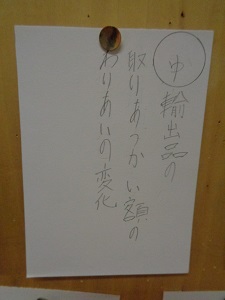 中 輸出品の
取りあつかい額の
わりあいの変化